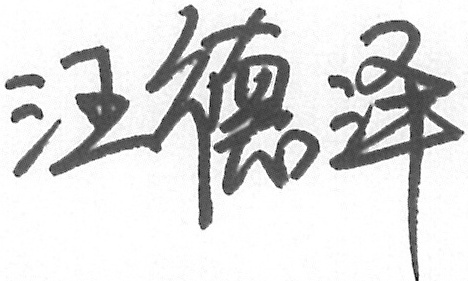 汪德泽